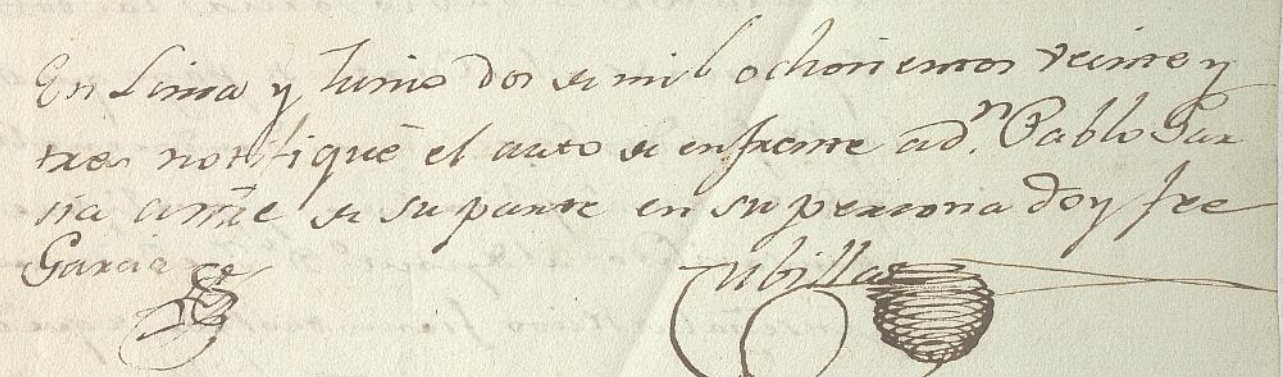 En Lima y Junio dos de mil ochocientos veinte y
tres notifiqué el auto de enfrente a dn. Pablo Gar
cia ante de su parte en su persona doy fee
Garcia
Ubillas